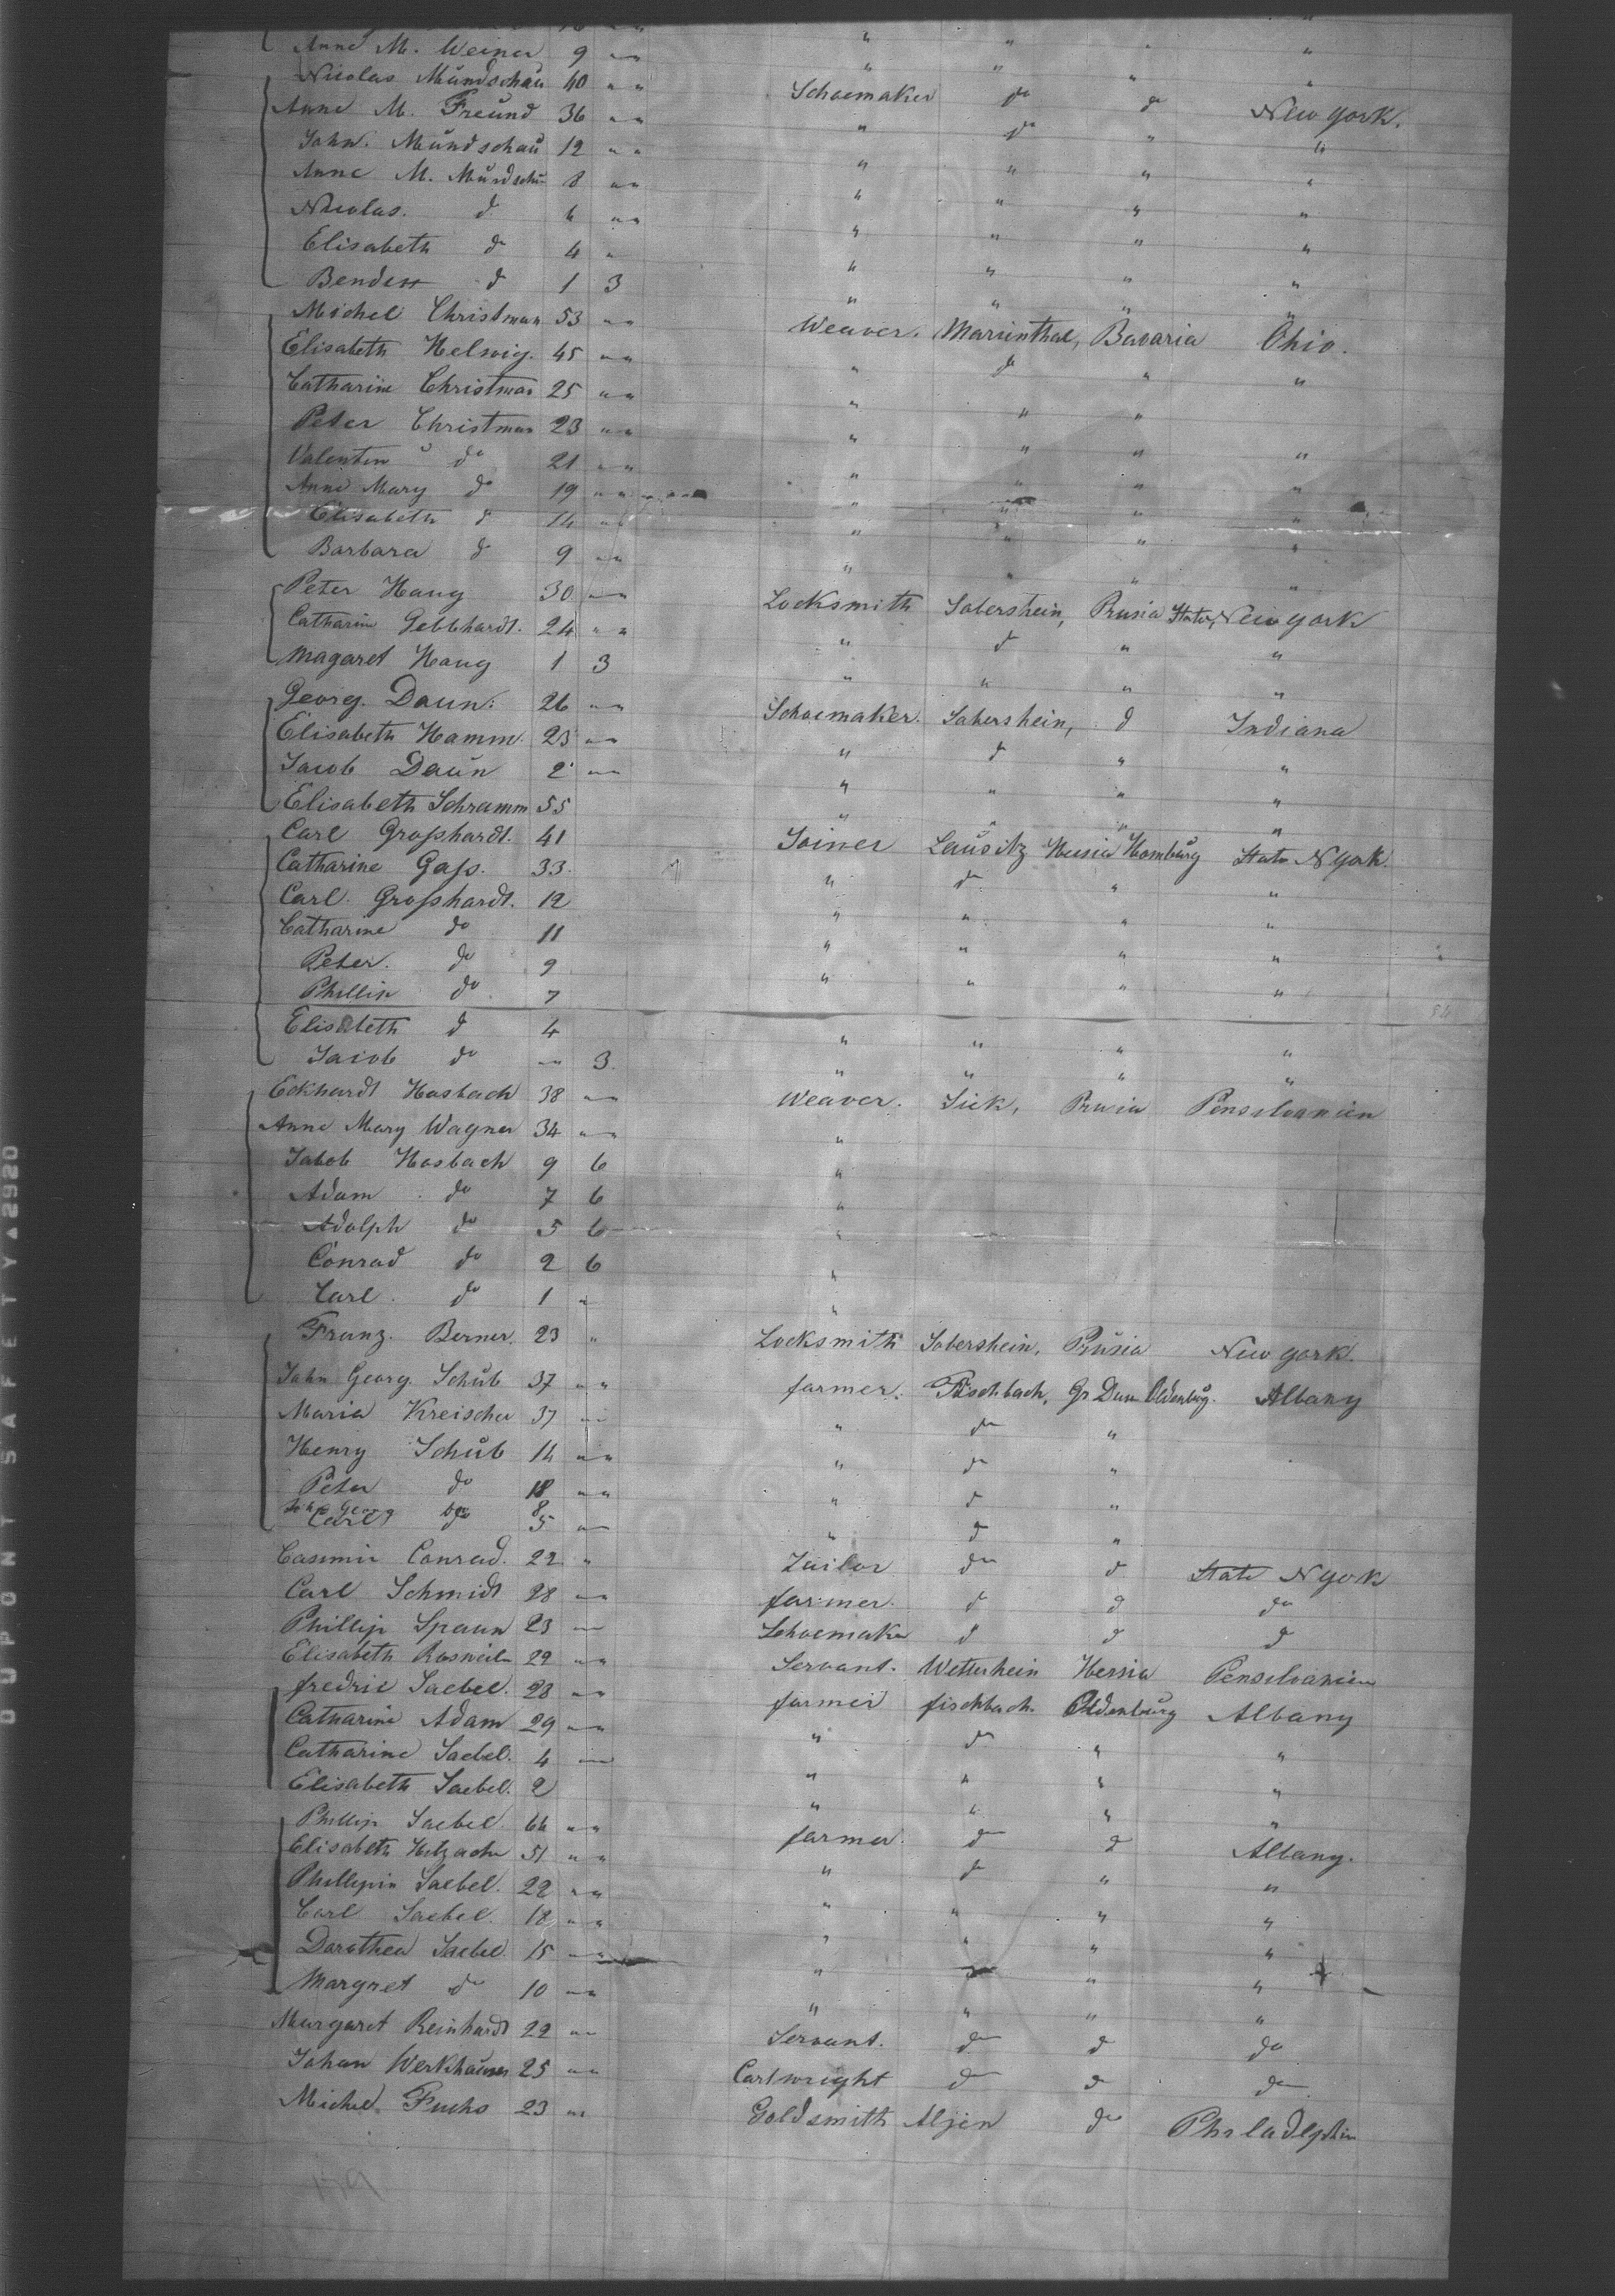 Anne M. Weiner 9 " " " " " "
Nicolas Mündschau 40 " " Schoemaker do do New York.
Anne M. Freund 36 " " " do " "
John. Mündschau 12 " " " " " "
Anne M. Mündschau 8 " " " " " "
Nicolas. do 6 " " " " " "
Elisabeth do 4 " " " " "
do 1 3 " " " "
Michel Christman 53 " " Weaver. Marienthal, Bavaria Ohio.
Elisabeth Helwig. 45 " " " do " "
Catharine Christman 25 " " " " "
Peter Christman 23 " " " " " "
Valentin do 21 " " " " " "
Anne Mary do 19 " " " " " "
Elisabeth do 14 " " " " " "
Barbara do 9 " " " " " "
Peter Haug 30 " " Locksmith Sobershein, Prusia State, New York
Catharine Gebbhardt. 24 " " " do " "
Magaret Haug 1 3 " " " "
Georg. Daun. 26 " " Schoemaker. Sobershein, do Indiana
Elisabeth Hamm. 23 " " " do " "
Jacob Daün 2 " " " " " "
Elisabeth Schramm 55 " " " "
Carl Großhardt. 41 Joiner Lausitz Hessia Homburg State N York.
Catharine Gaß. 33. " do " "
Carl. Großhardt. 12 " " " "
Catharine do 11 " " " "
Peter. do 9 " " " "
Phillip do 7
Elisabeth do 4 " " " "
Jacob do " " 3. " " " "
Eckhardt Hasbach 38 " " Weaver. Sick, Prusia Pensilvanien
Anne Mary Wagner 34 " " "
Jakob Hosbach 9 6 "
Adam do 7 6 "
Adolph do 5 6 "
Conrad do 2 6 "
Carl. do 1 " "
Franz. Berner. 23 " Locksmith Sobershein, Prüsia New York.
John Georg. Schüb 37 " " farmer. Fischbach, Gr Oldenburg. Albany
Maria Kreischer 37 " " " do "
Henry Schüb 14 " " " do "
Peter do 18 " " " do "
Georg do 8
Carl do 5 " " do "
Casimir Conrad. 22 " Tailor do do State N York
Carl Schmidt 28 " " farmer. do do do
Phillip Spaun 23 " " Schoemaker do do do
Elisabeth 29 " " Servant. Hessia Pensilvanien
fredric Saebel. 28 " " farmer fischbach. Oldenburg Albany
Catharine Adam 29 " " " do " "
Catharine Saebel. 4 " " " " " "
Elisabeth Saebel. 2 " " " "
Phillip Saebel. 66 " " farmer. do do Albany.
Elisabeth 51 " " " do " "
Phillipin Saebel. 22 " " " " " "
Carl Saebel. 18 " " " " " "
Dorothea Saebel. 15 " " " " " "
Margret do 10 " " " " " "
Margaret Reinhardt 22 " " Servant. do do do
Johan Werkhäuser 25 " " Cartwright do do do
Michel Fuchs 23 " " Goldsmith do
DUPONT SAFETY ▲ 2920